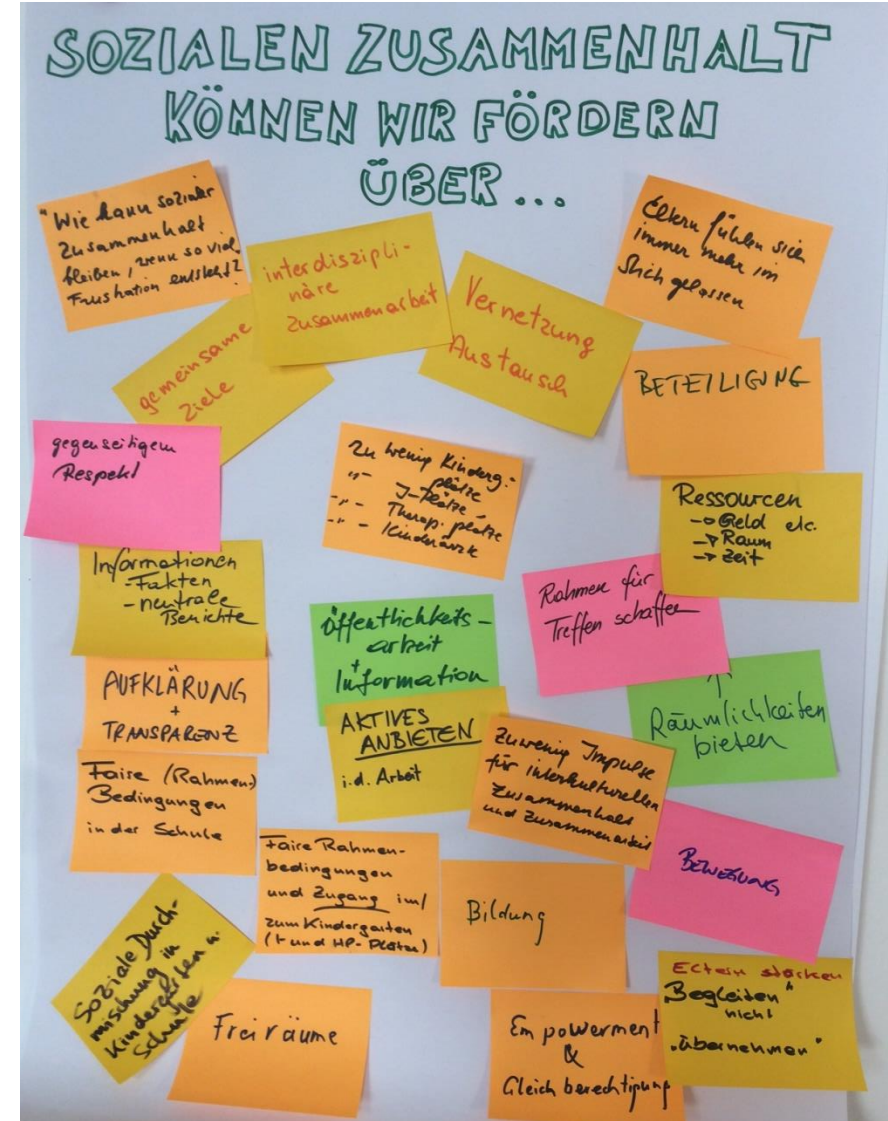 SOZIALEN ZUSAMMENHALT
KÖNNEN WIR FÖRDERN
ÜBER ...
"Wie kann sozialer
Zusammenhalt
bleiben, wenn so viel
Frustration entsteht?
interdiszipli-
näre
Zusammenarbeit
Vernetzung
Austausch
Eltern fühlen sich
immer mehr im
Stich gelassen
gemeinsame
Ziele
BETEILIGUNG
gegenseitigem
Respekt
Zu wenig Kinderg.-
plätze
-"- I-Plätze -
-"- Therap. plätze
-"- Kinderärzte
Ressourcen
→ Geld etc.
→ Raum
→ Zeit
Informationen
- Fakten
- neutrale
Berichte
Öffentlichkeits-
arbeit
+
Information
Rahmen für
Treffen schaffen
AUFKLÄRUNG
+
TRANSPARENZ
AKTIVES
ANBIETEN
i.d. Arbeit
↑
Räumlichkeiten
bieten
Zu wenig Impulse
für interkulturellen
Zusammenhalt
und Zusammenarbeit
Faire (Rahmen-)
Bedingungen
in der Schule
Faire Rahmen-
bedingungen
und Zugang im/
zum Kindergarten
(I und HP-Plätze)
Bildung
BEWEGUNG
Soziale Durch-
mischung in
Kindergärten u.
Schule
Freiräume
Empowerment
&
Gleichberechtigung
Eltern stärken
Begleiten"
nicht
"übernehmen"